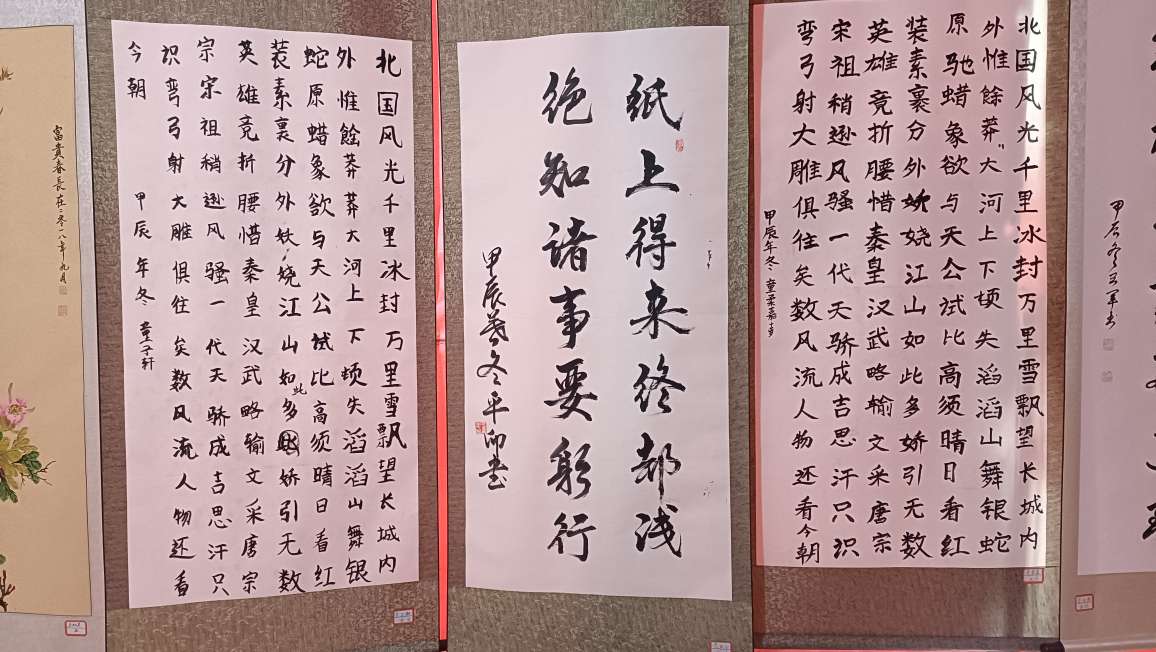 甲辰冬
北国风光千里冰封万里雪飘望长城内
外惟餘莽〃大河上下顿失滔滔山舞银蛇
原驰蜡象欲与天公试比高须晴日看红
装素裹分外妖娆江山如此多娇引无数
英雄竞折腰惜秦皇汉武略输文采唐宗
宋祖稍逊风骚一代天骄成吉思汗只识
弯弓射大雕俱往矣数风流人物还看今朝
甲辰年冬 童柔嘉书
纸上得来终却浅
绝知诸事要躬行
甲辰暮冬平
北国风光千里冰封万里雪飘望长城内
外惟餘莽莽大河上下顿失滔滔山舞银
蛇原蜡象欲与天公试比高须晴日看红
装素裹分外妖娆江山如此多娇引无数
英雄竞折腰惜秦皇汉武略输文采唐宗
宗宋祖稍逊风骚一代天骄成吉思汗只
识弯弓射大雕俱往矣数风流人物还看
今朝 甲辰年冬 童子轩
富貴春長在二零一八年九月